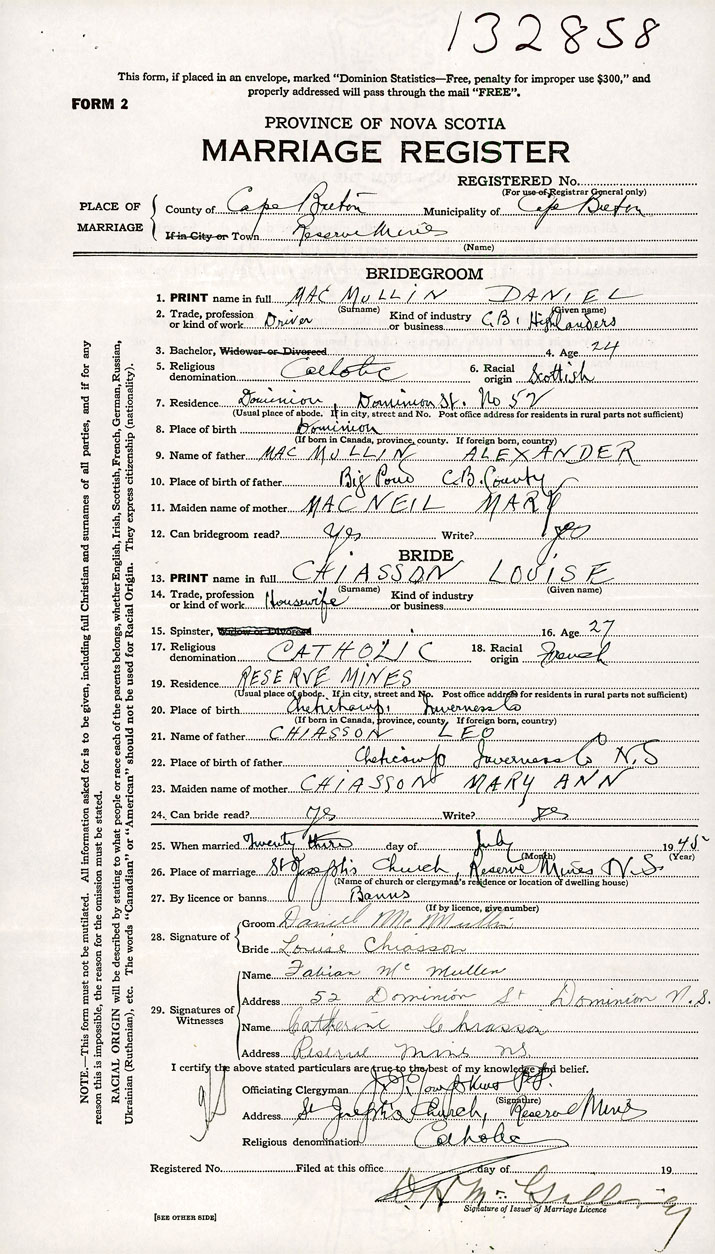 132858
This form, if placed in an envelope, marked "Dominion Statistics—Free, penalty for improper use $300," and
properly addressed will pass through the mail "FREE".
FORM 2
PROVINCE OF NOVA SCOTIA
MARRIAGE REGISTER
REGISTERED No.
(For use of Registrar General only)
PLACE OF MARRIAGE
County of Cape Breton Municipality of Cape Breton
If in City or Town Reserve Mines
(Name)
BRIDEGROOM
1. PRINT name in full MAC MULLIN DANIEL
(Surname) (Given name)
2. Trade, profession or kind of work Driver Kind of industry or business C.B. Highlanders
3. Bachelor, Widower or Divorced 4. Age 24
5. Religious denomination Catholic 6. Racial origin Scottish
7. Residence Dominion, Dominion St. No 52
(Usual place of abode. If in city, street and No. Post office address for residents in rural parts not sufficient)
8. Place of birth Dominion
(If born in Canada, province, county. If foreign born, country)
9. Name of father MAC MULLIN ALEXANDER
10. Place of birth of father Big Pond C.B. County
11. Maiden name of mother MACNEIL MARY
12. Can bridegroom read? Yes Write? yes
BRIDE
13. PRINT name in full CHIASSON LOUISE
(Surname) (Given name)
14. Trade, profession or kind of work Housewife Kind of industry or business
15. Spinster, Widow or Divorced 16. Age 27
17. Religious denomination CATHOLIC 18. Racial origin French
19. Residence RESERVE MINES
(Usual place of abode. If in city, street and No. Post office address for residents in rural parts not sufficient)
20. Place of birth Chetichamp, Inverness Co
(If born in Canada, province, county, If foreign born, country)
21. Name of father CHIASSON LEO
22. Place of birth of father Cheticamp Inverness Co N.S
23. Maiden name of mother CHIASSON MARY ANN
24. Can bride read? yes Write? yes
25. When married Twenty third day of July 1945
(Month) (Year)
26. Place of marriage St Joseph's Church, Reserve Mines N.S.
(Name of church or clergyman's residence or location of dwelling house)
27. By licence or banns Banns
(If by licence, give number)
28. Signature of
Groom Daniel McMullin
Bride Louise Chiasson
29. Signatures of Witnesses
Name Fabian McMullen
Address 52 Dominion St Dominion N.S.
Name Catherine Chiasson
Address Reserve Mines NS.
I certify the above stated particulars are true to the best of my knowledge and belief.
Officiating Clergyman
(Signature)
Address St Joseph's Church, Reserve Mines
Religious denomination Catholic
Registered No. Filed at this office day of 19
Signature of Issuer of Marriage Licence
[SEE OTHER SIDE]
NOTE.—This form must not be mutilated. All information asked for is to be given, including full Christian and surnames of all parties, and if for any
reason this is impossible, the reason for the omission must be stated.
RACIAL ORIGIN will be described by stating to what people or race each of the parents belongs, whether English, Irish, Scottish, French, German, Russian,
Ukrainian (Ruthenian), etc. The words "Canadian" or "American" should not be used for Racial Origin. They express citizenship (nationality).